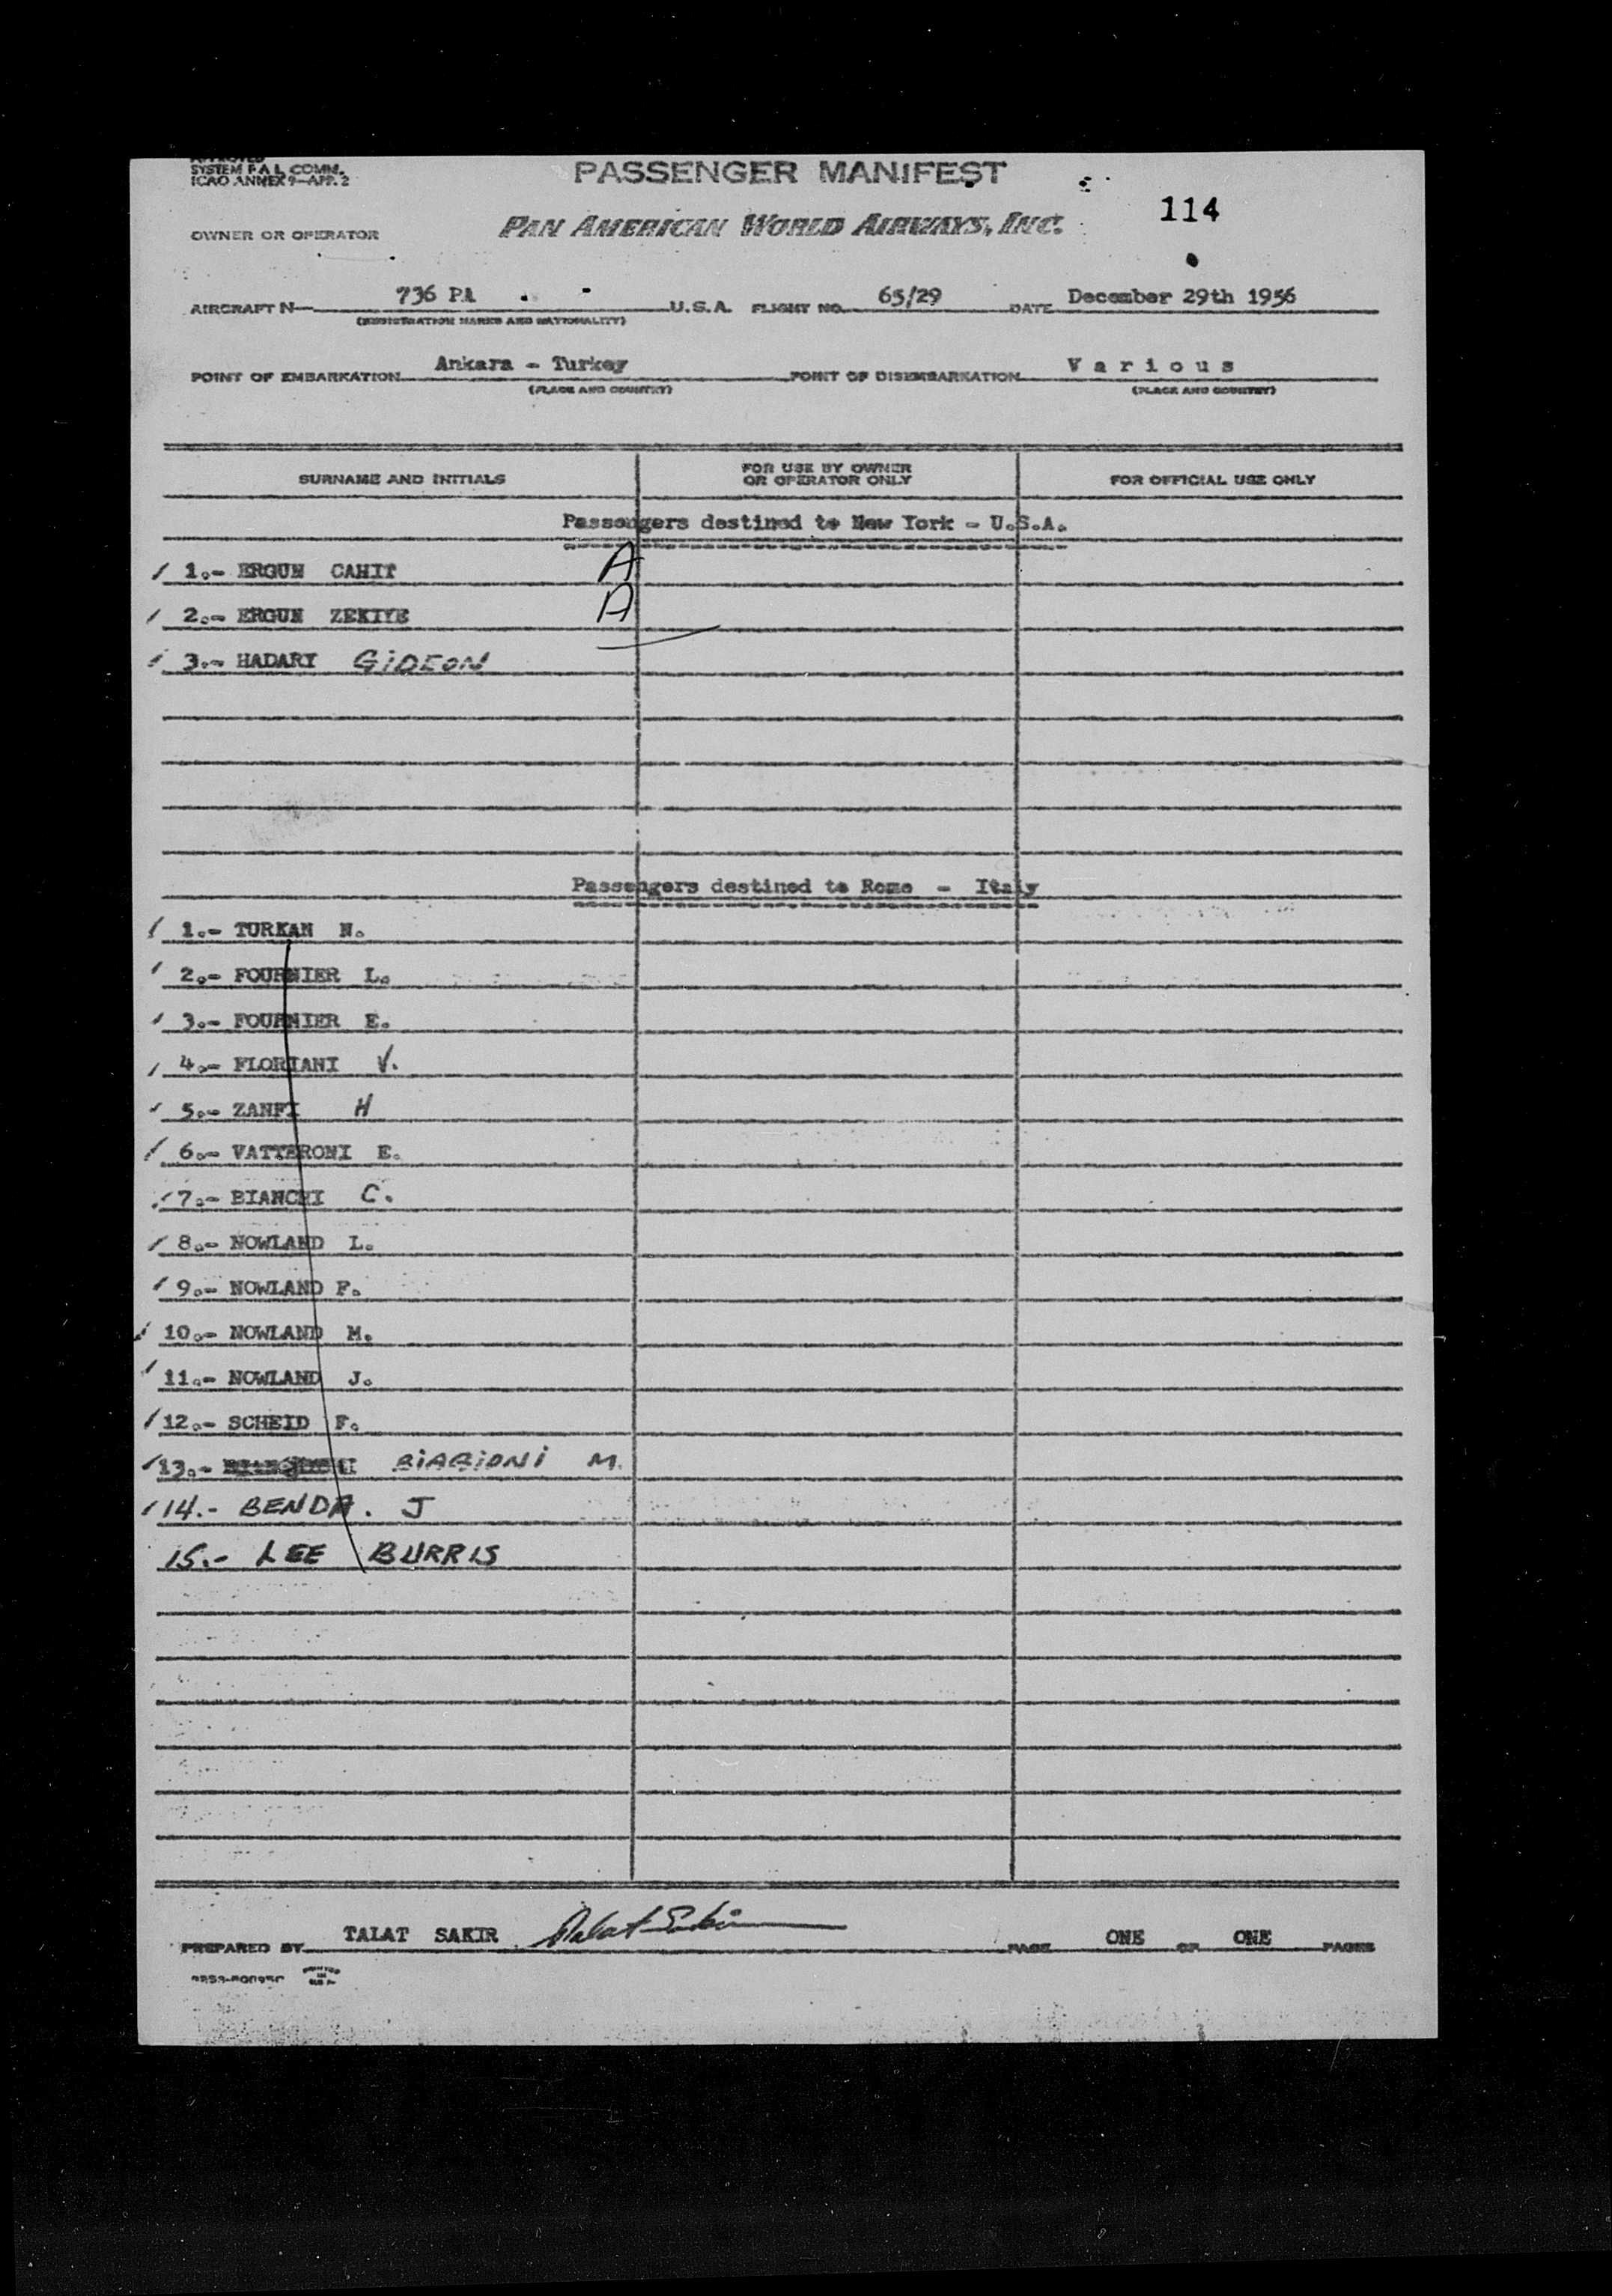 APPROVED
SYSTEM P A L COMM.
ICAO ANNEX 9—APP. 2
PASSENGER MANIFEST
114
OWNER OR OPERATOR PAN AMERICAN WORLD AIRWAYS, INC.
AIRCRAFT N— 736 PA U.S.A. FLIGHT NO. 65/29 DATE December 29th 1956
(REGISTRATION MARKS AND NATIONALITY)
POINT OF EMBARKATION Ankara - Turkey POINT OF DISEMBARKATION V a r i o u s
(PLACE AND COUNTRY) (PLACE AND COUNTRY)
SURNAME AND INITIALS FOR USE BY OWNER OR OPERATOR ONLY FOR OFFICIAL USE ONLY
Passengers destined to New York - U.S.A.
1.- ERGUN CAHIT A
2.- ERGUN ZEKIYE A
3.- HADARY GIDEON
Passengers destined to Rome - Italy
1.- TURKAN N.
2.- FOURNIER L.
3.- FOURNIER E.
4.- FLORIANI V.
5.- ZANFI H
6.- VATTERONI E.
7.- BIANCHI C.
8.- NOWLAND L.
9.- NOWLAND F.
10.- NOWLAND M.
11.- NOWLAND J.
12.- SCHEID F.
13.- BIAGIONI M.
14.- BENDA. J
15.- LEE BURRIS
PREPARED BY TALAT SAKIR Talat Sakir PAGE ONE OF ONE PAGES
PRINTED IN U.S.A.